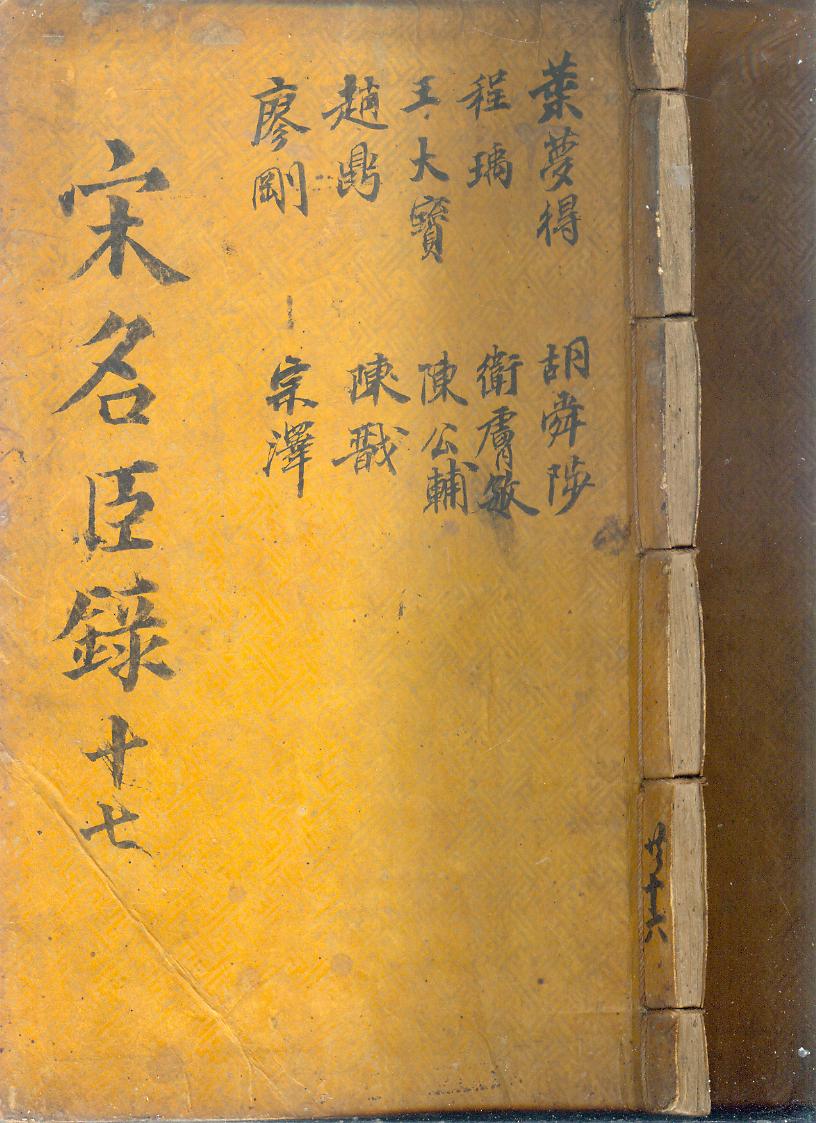 葉夢得 胡舜陟
程瑀 衛膚敏
王大寶 陳公輔
趙鼎 陳戩
廖剛 宗澤
宋名臣錄 十七
共十六